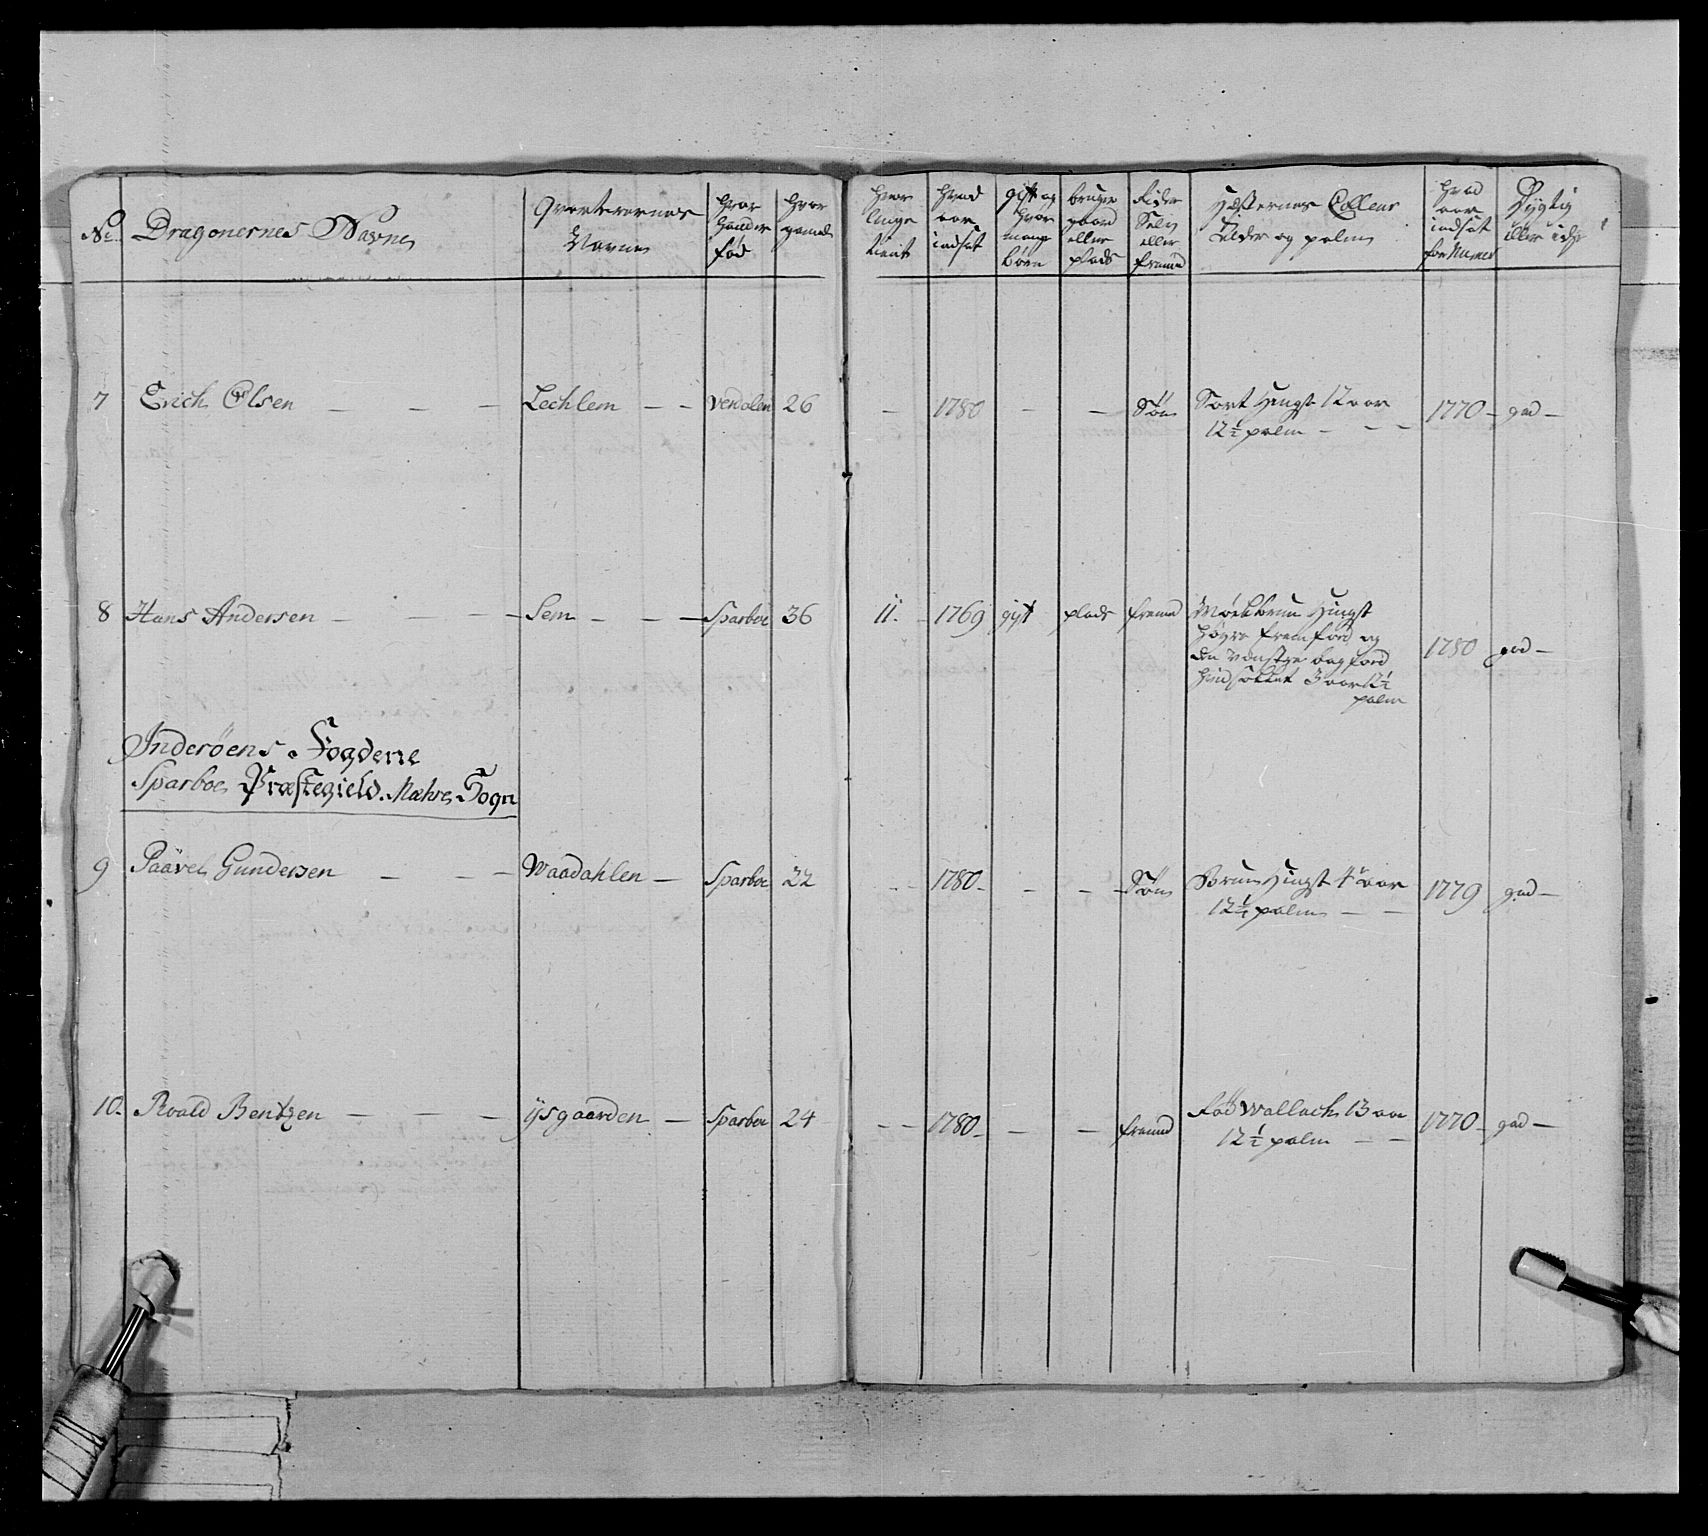 No Dragonernes Navne
Qvarterernes Navne
hvor handen fød
hvor gamel
hvor længe tient
hvad aar indsat
gift og hvor mange børn
bruger gaard eller plads
Rider Selv eller fremd
Hæsternes Colleur Elder og palm
hvad aar indsat for Numer
Dygtig eller idye
7 Erich Olsen — — — Lechlem — — Verdalen 26 — 1780 — — Søn Sort Hingst 12 aar 1770 — god —
12½ palm — — —
8 Hans Andersen — — — Sem — — — Sparboe 36 11. — 1769 gift plads fremd Mørkbrun Hingst
høyre fremfoed og
den venstre bagfoed 1780 god —
hvidsokket 3 aar 12½
palm
Inderöens Fogderie
Sparboe Præstegield. Mæhre Sogn
9 Paavel Gundersen — — — Waadahlen — Sparboe 22 — — 1780 — — — Søn Bruun Hingst 4 aar 1779 god —
12½ palm — —
10. Roald Bentzen — — — ÿsgaarden — Sparboe 24 — — 1780 — — — fremd Rød Wallach 13 aar 1770 — god —
12½ palm — —